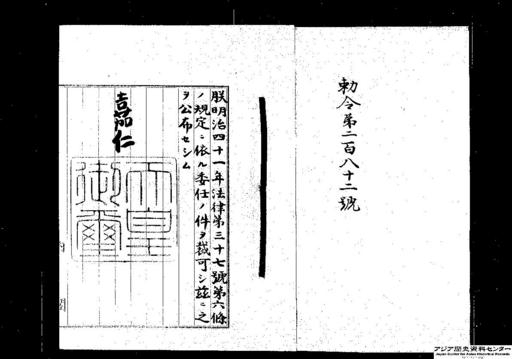 勅令第二百八十二號
朕明治四十一年法律第三十七號第六條
ノ規定ニ依ル委任ノ件ヲ裁可シ茲ニ之
ヲ公布セシム
嘉仁
天皇
御璽
内閣
アジア歴史資料センター
Japan Center for Asian Historical Records